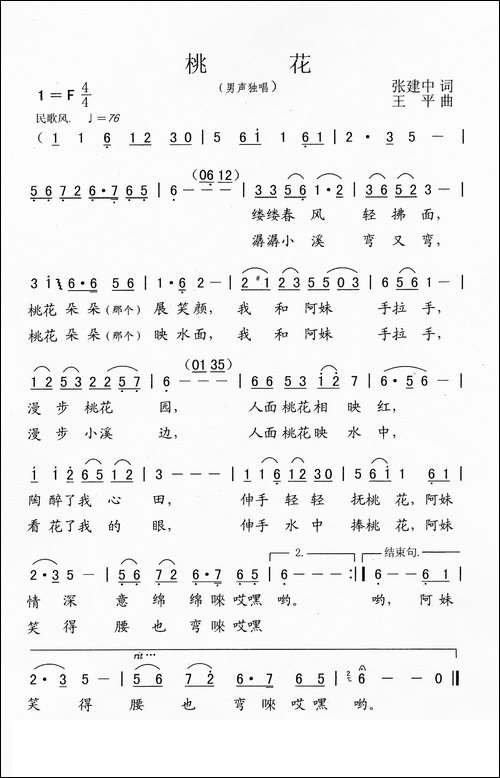 桃 花
(男声独唱)
1=F 4/4
张建中 词
王 平 曲
民歌风. ♩=76
( 1 1 6 12 30 | 5 61 1 61 | 2·3 5 - |
56 72 6·7 65 | 6 - - (06 12) | 33 56 1·2 | 36 52 3 - |
缕缕春 风 轻 拂 面,
潺潺小 溪 弯 又 弯,
3 i 6·6 56 | 1·6 2 - | 2 #1 23 55 03 | 6 5 6 - |
桃花 朵朵(那个) 展 笑颜, 我 和 阿妹 手拉 手,
桃花 朵朵(那个) 映 水面, 我 和 阿妹 手拉 手,
12 53 22 57 | 6 - - (01 35) | 66 53 i2 7 | 6·5 6 - |
漫 步 桃花 园, 人面桃花相 映 红,
漫 步 小溪 边, 人面桃花映 水 中,
i i2 65 12 | 3 - - - | 11 6 12 30 | 5 6i 1 61 |
陶 醉了我 心 田, 伸手 轻轻 抚桃 花, 阿妹
看 花了我 的 眼, 伸手 水中 捧桃 花, 阿妹
2·3 5 - | 56 72 6·7 65 | 6 - - - :| 6 - 6 61 |
2.
结束句.
情 深 意 绵 绵 唻 哎嘿 哟。 哟, 阿妹
笑 得 腰 也 弯 唻 哎嘿
rit···
2·3 5 - | 5 6 7 2 | 6·7 6 5 | 6 - - 0 ‖
笑 得 腰 也 弯 唻 哎 嘿 哟。